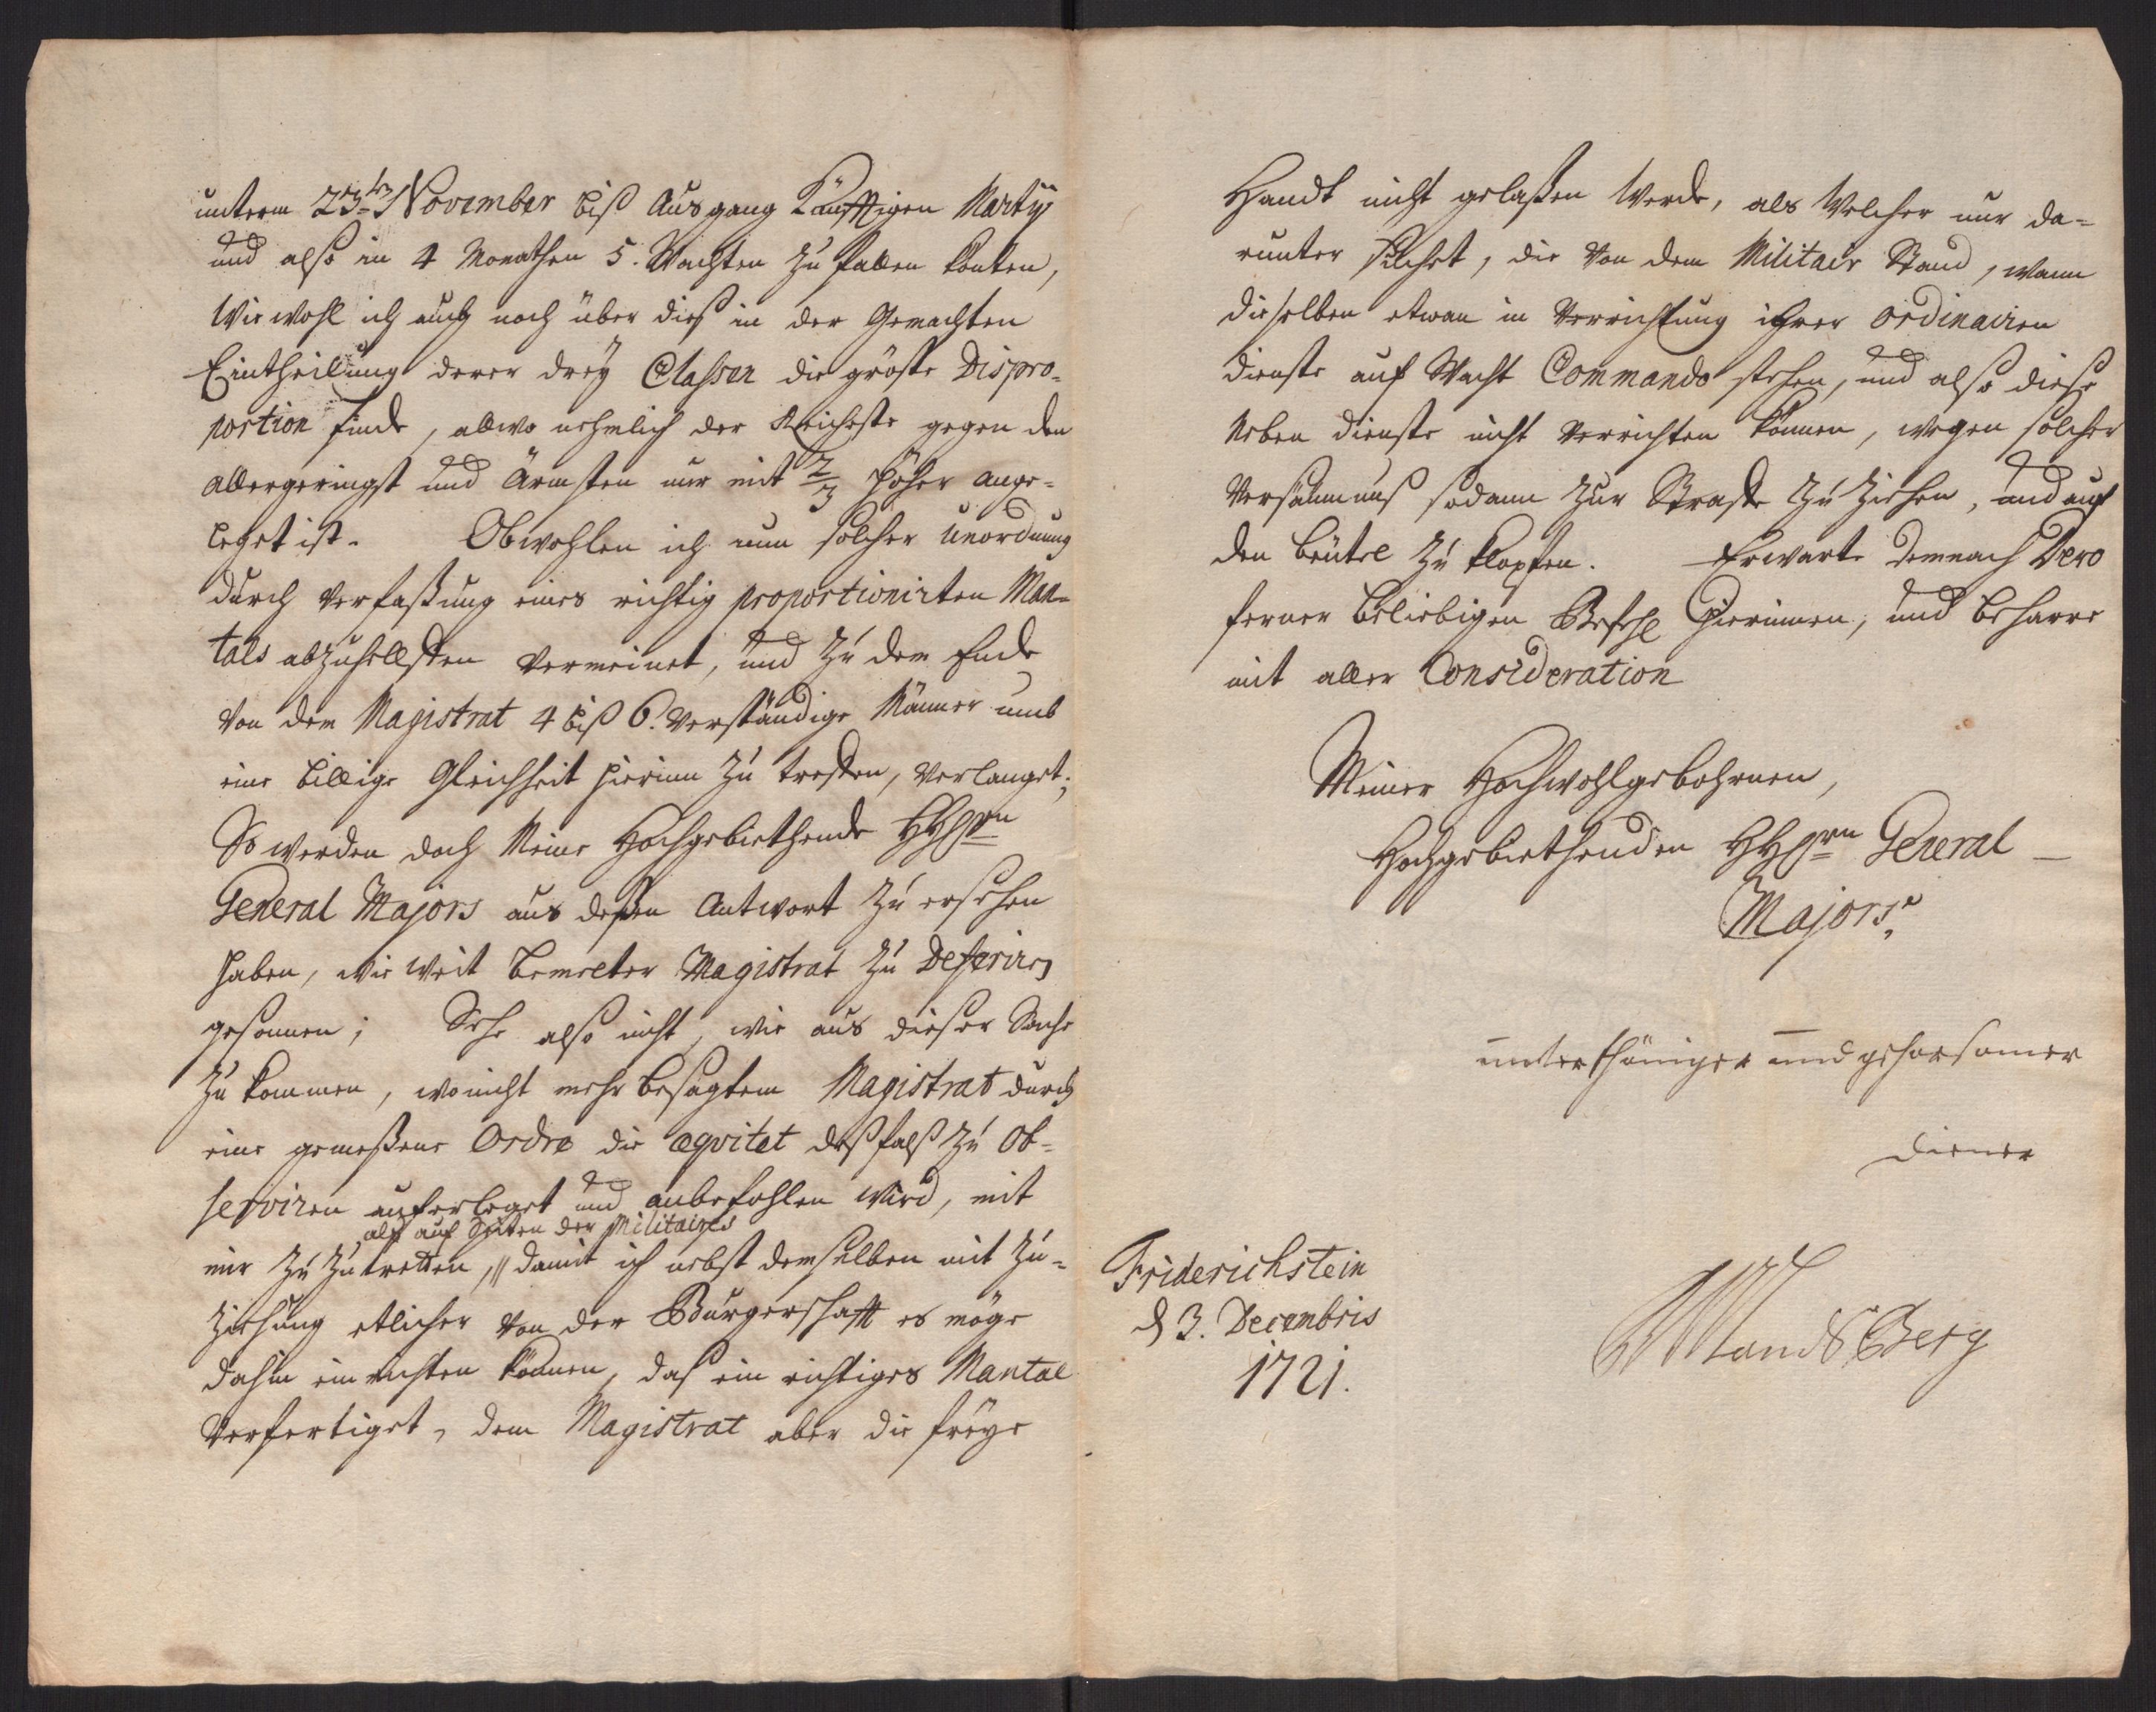 unterm 23ten November biß Ausgang Künfftigen Martÿ
und also in 4 Monathen 5. Wachten zu fallen könten,
Wie wohl ich auch noch über dieß in der Gemachten
Eintheilung derer dreÿ Classen die gröste Dispro-
portion finde, allwo nehmlich der Reicheste gegen den
allergeringst und Ärmsten nur mit 2/3 höher ange-
leget ist. Obwohlen ich nun solcher unordnung
durch Verfaßung eines richtig proportionirten Man-
tals abzuhelffen Vermeinet, und zu dem Ende
von dem Magistrat 4 biß 6. Verständige Männer umb
eine billige Gleichheit hierinn zu treffen, Verlanget;
So werden doch Meine Hochgebiethende HHErrn
General Majors aus deßen Antwort zu ersehen
haben, wie weit bemelter Magistrat zu Deferiren
gesonnen; Sehe also nicht, wie aus dieser Sache
zu kommen, wo nicht mehr besagtem Magistrat durch
eine gemeßene Ordre die æqvitet deßfalß zu Ob-
serviren auferleget und anbefohlen wird, mit
alß auf Seiten der Militaires
mir zu zutretten, // damit ich nebst demselben mit Zu-
ziehung etlicher von der Bürgerschafft es möge
dahin einrichten können, daß ein richtiges Mantal
Verfertiget, dem Magistrat aber die freÿe
Handt nicht gelaßen Werde, als Welcher nur da-
runter suchet, die Von dem Militair Stand, wann
dieselben etwan in Verrichtung ihrer ordinairen
dienste auf Wacht Commando stehen, und also diese
Neben dienste nicht Verrichten können, wegen solcher
Versäumnuß sodann zur Straffe zu ziehen, und auf
den beutel zu klopfen. Erwarte demnach Dero
ferner beliebigen Befehl hierinnen, und beharre
mit aller Consideration
Meiner Hochwohlgebohrnen,
Hochgebiethenden HHErrn General
Majors,
unterthäniger und gehorsamer
diener
Friderichstein
d 3. Decembris
1721.
LandsBerg